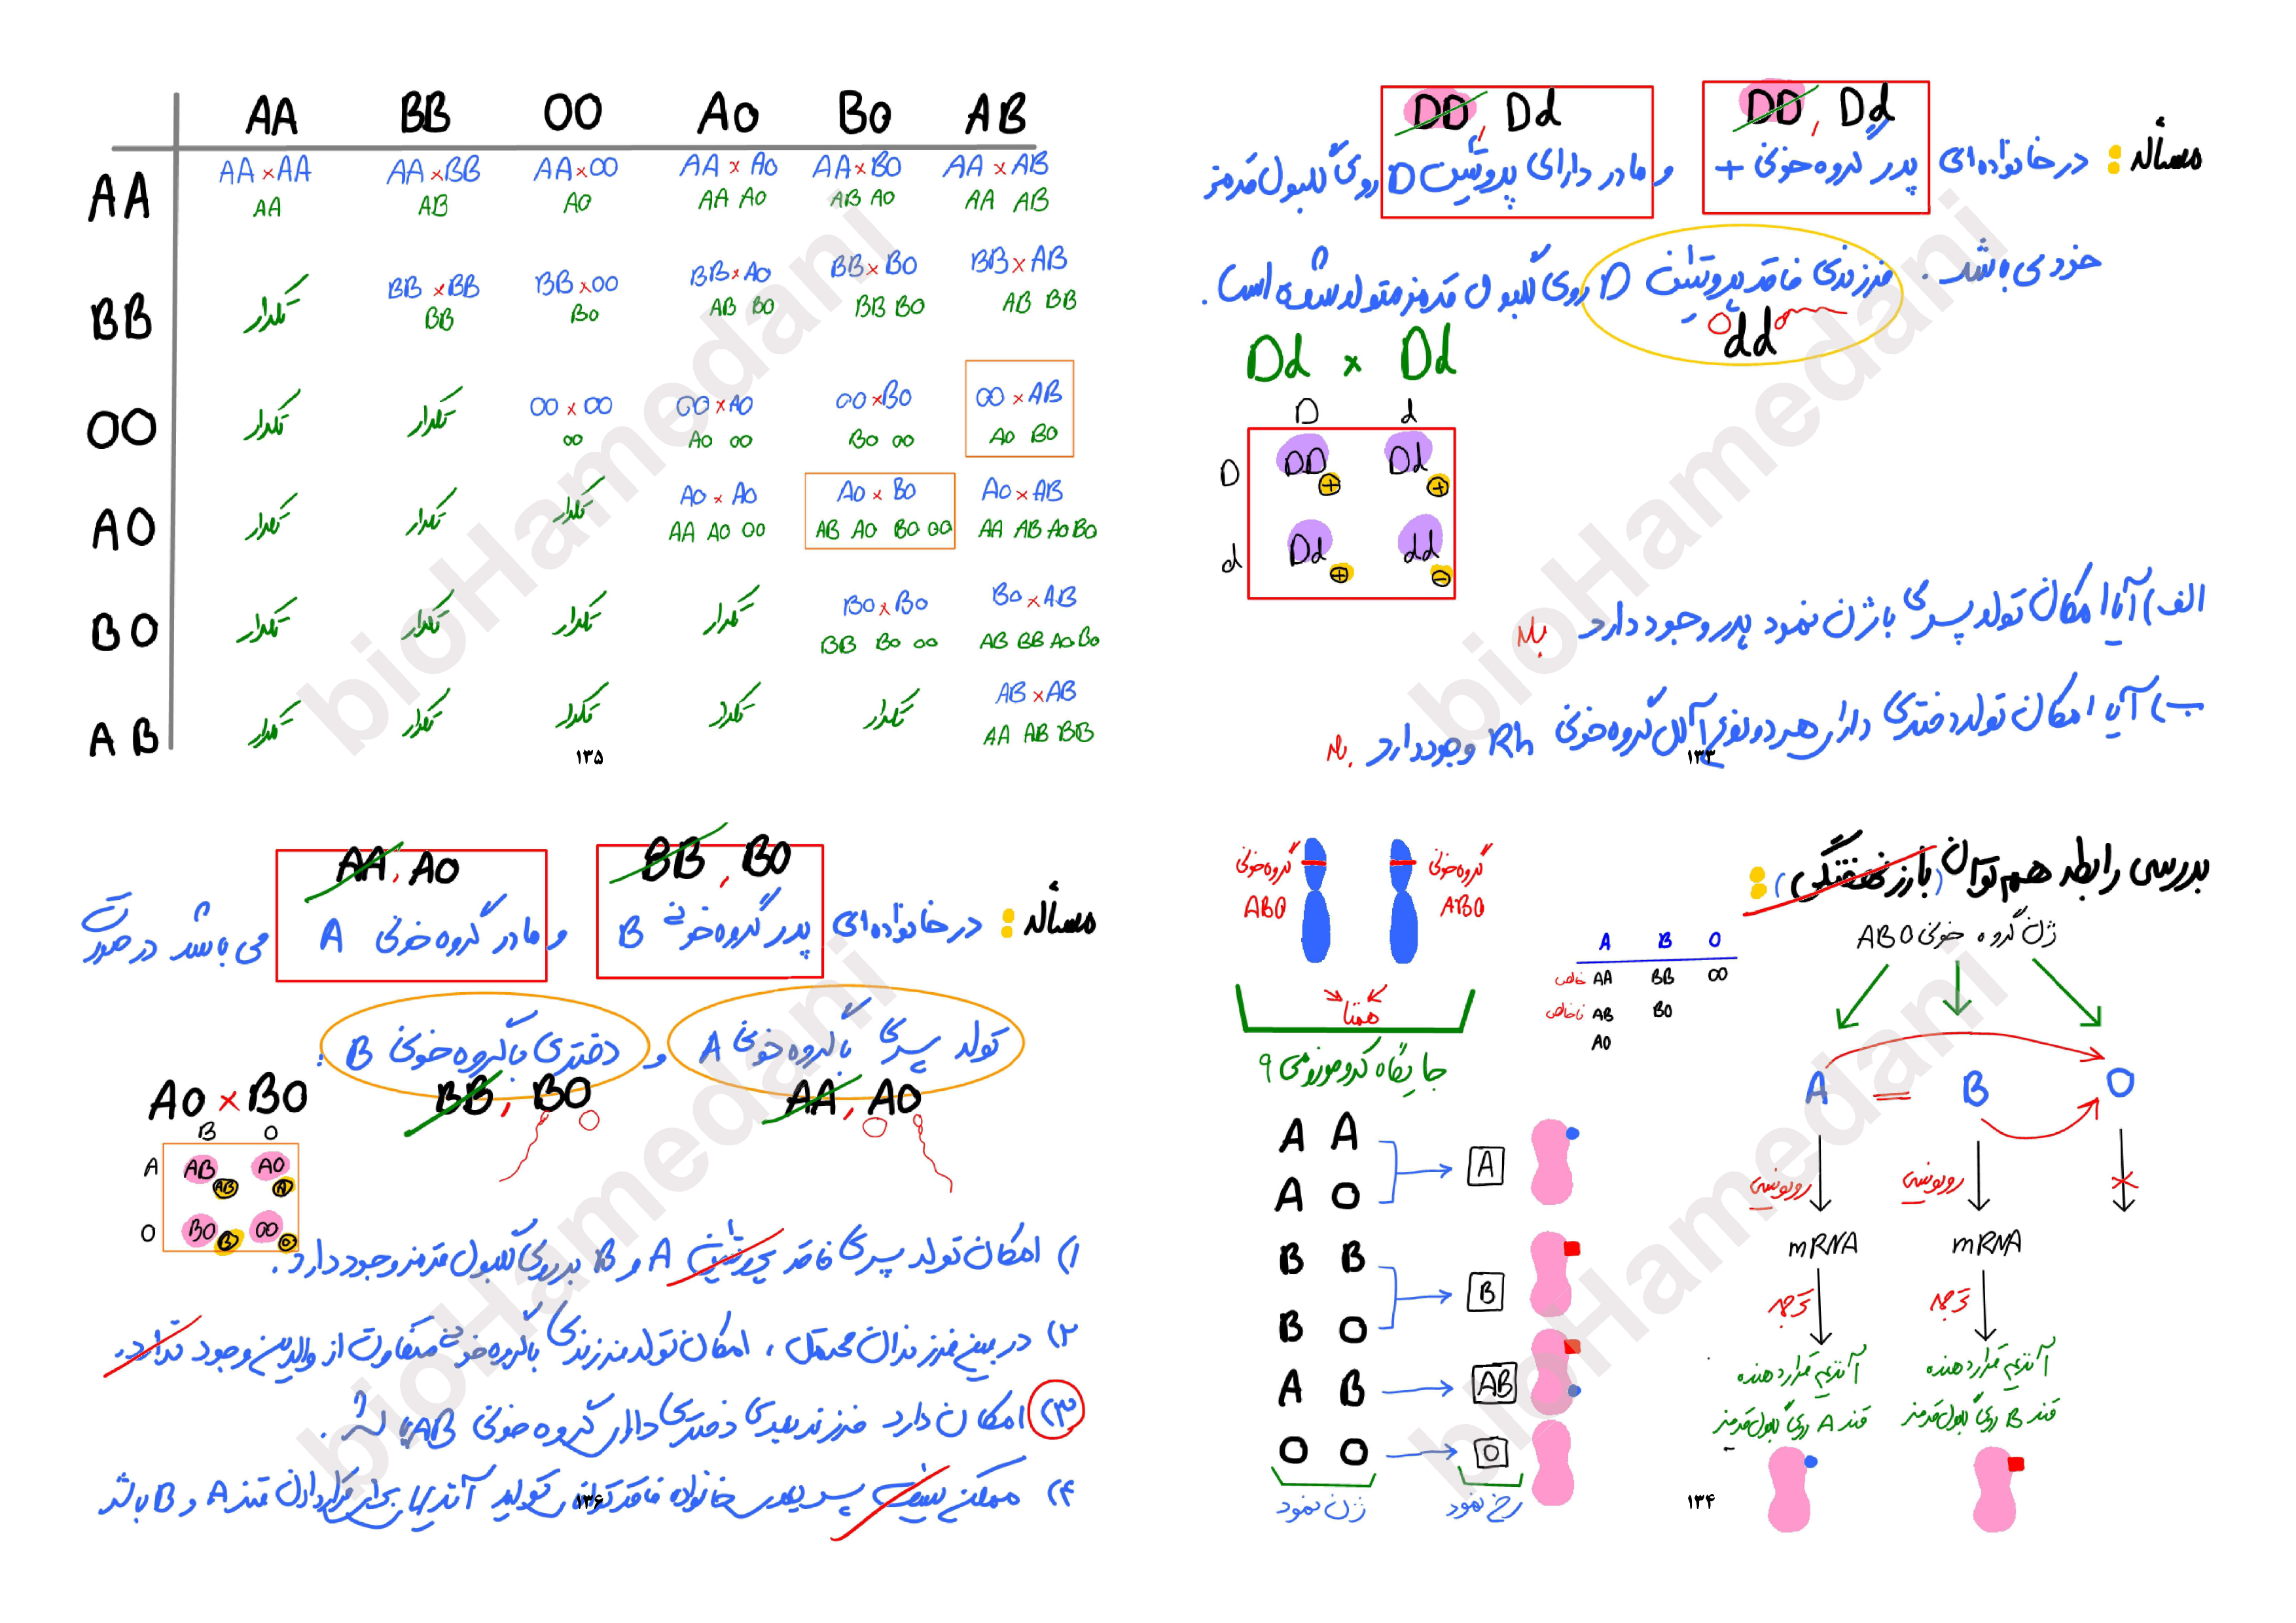 DD, Dd
DD, Dd
مسأله : در خانواده ای پدر گروه خونی + و مادر دارای پروتئین D روی گلبول قرمز
خود می باشد. فرزندی فاقد پروتئین D روی گلبول قرمز متولد شده است.
dd
Dd × Dd
D d
D DD + Dd +
d Dd + dd -
الف) آیا امکان تولد پسری با ژن نمود پدر وجود دارد بله
ب) آیا امکان تولد دختری دارای هر دو نوع آلل گروه خونی Rh وجود دارد بله
۱۳۳
بررسی رابطه هم توان (بارز نهفتگی) :
ژن گروه خونی ABO
A = B O
رونویسی رونویسی
mRNA mRNA
ترجمه ترجمه
آنزیم قرار دهنده آنزیم قرار دهنده
قند A روی گلبول قرمز قند B روی گلبول قرمز
گروه خونی ABO گروه خونی ABO
همتا
جایگاه کروموزومی ۹
A B O
خالص AA BB OO
ناخالص AB BO
AO
A A
A O
A
B B
B O
B
A B AB
O O O
ژن نمود رخ نمود
۱۳۴
AA BB OO AO BO AB
AA AA×AA AA×BB AA×OO AA×AO AA×BO AA×AB
AA AB AO AA AO AB AO AA AB
BB تکرار BB×BB BB×OO BB×AO BB×BO BB×AB
BB BO AB BO BB BO AB BB
OO تکرار تکرار OO×OO OO×AO OO×BO OO×AB
OO AO OO BO OO AO BO
AO تکرار تکرار تکرار AO×AO AO×BO AO×AB
AA AO OO AB AO BO OO AA AB AO BO
BO تکرار تکرار تکرار تکرار BO×BO BO×AB
BB BO OO AB BB AO BO
AB تکرار تکرار تکرار تکرار تکرار AB×AB
AA AB BB
۱۳۵
BB, BO
AA, AO
مسأله : در خانواده ای پدر گروه خونی B و مادر گروه خونی A می باشد در صورت
تولد پسری با گروه خونی A و دختری با گروه خونی B :
AA, AO
BB, BO
AO × BO
B O
A AB AB AO A
O BO B OO O
۱) امکان تولد پسری فاقد پروتئین A و B بر روی گلبول قرمز وجود دارد.
۲) در بین فرزندان محتمل، امکان تولد فرزندی با گروه خونی متفاوت از والدین وجود ندارد.
۳) امکان دارد فرزند بعدی دختری دارای گروه خونی AB باشد.
۴) ممکن نیست پسر بعدی خانواده فاقد توانایی تولید آنزیم برای قرار دادن قند A و B باشد
۱۳۶
bioHamedani
bioHamedani
bioHamedani
bioHamedani